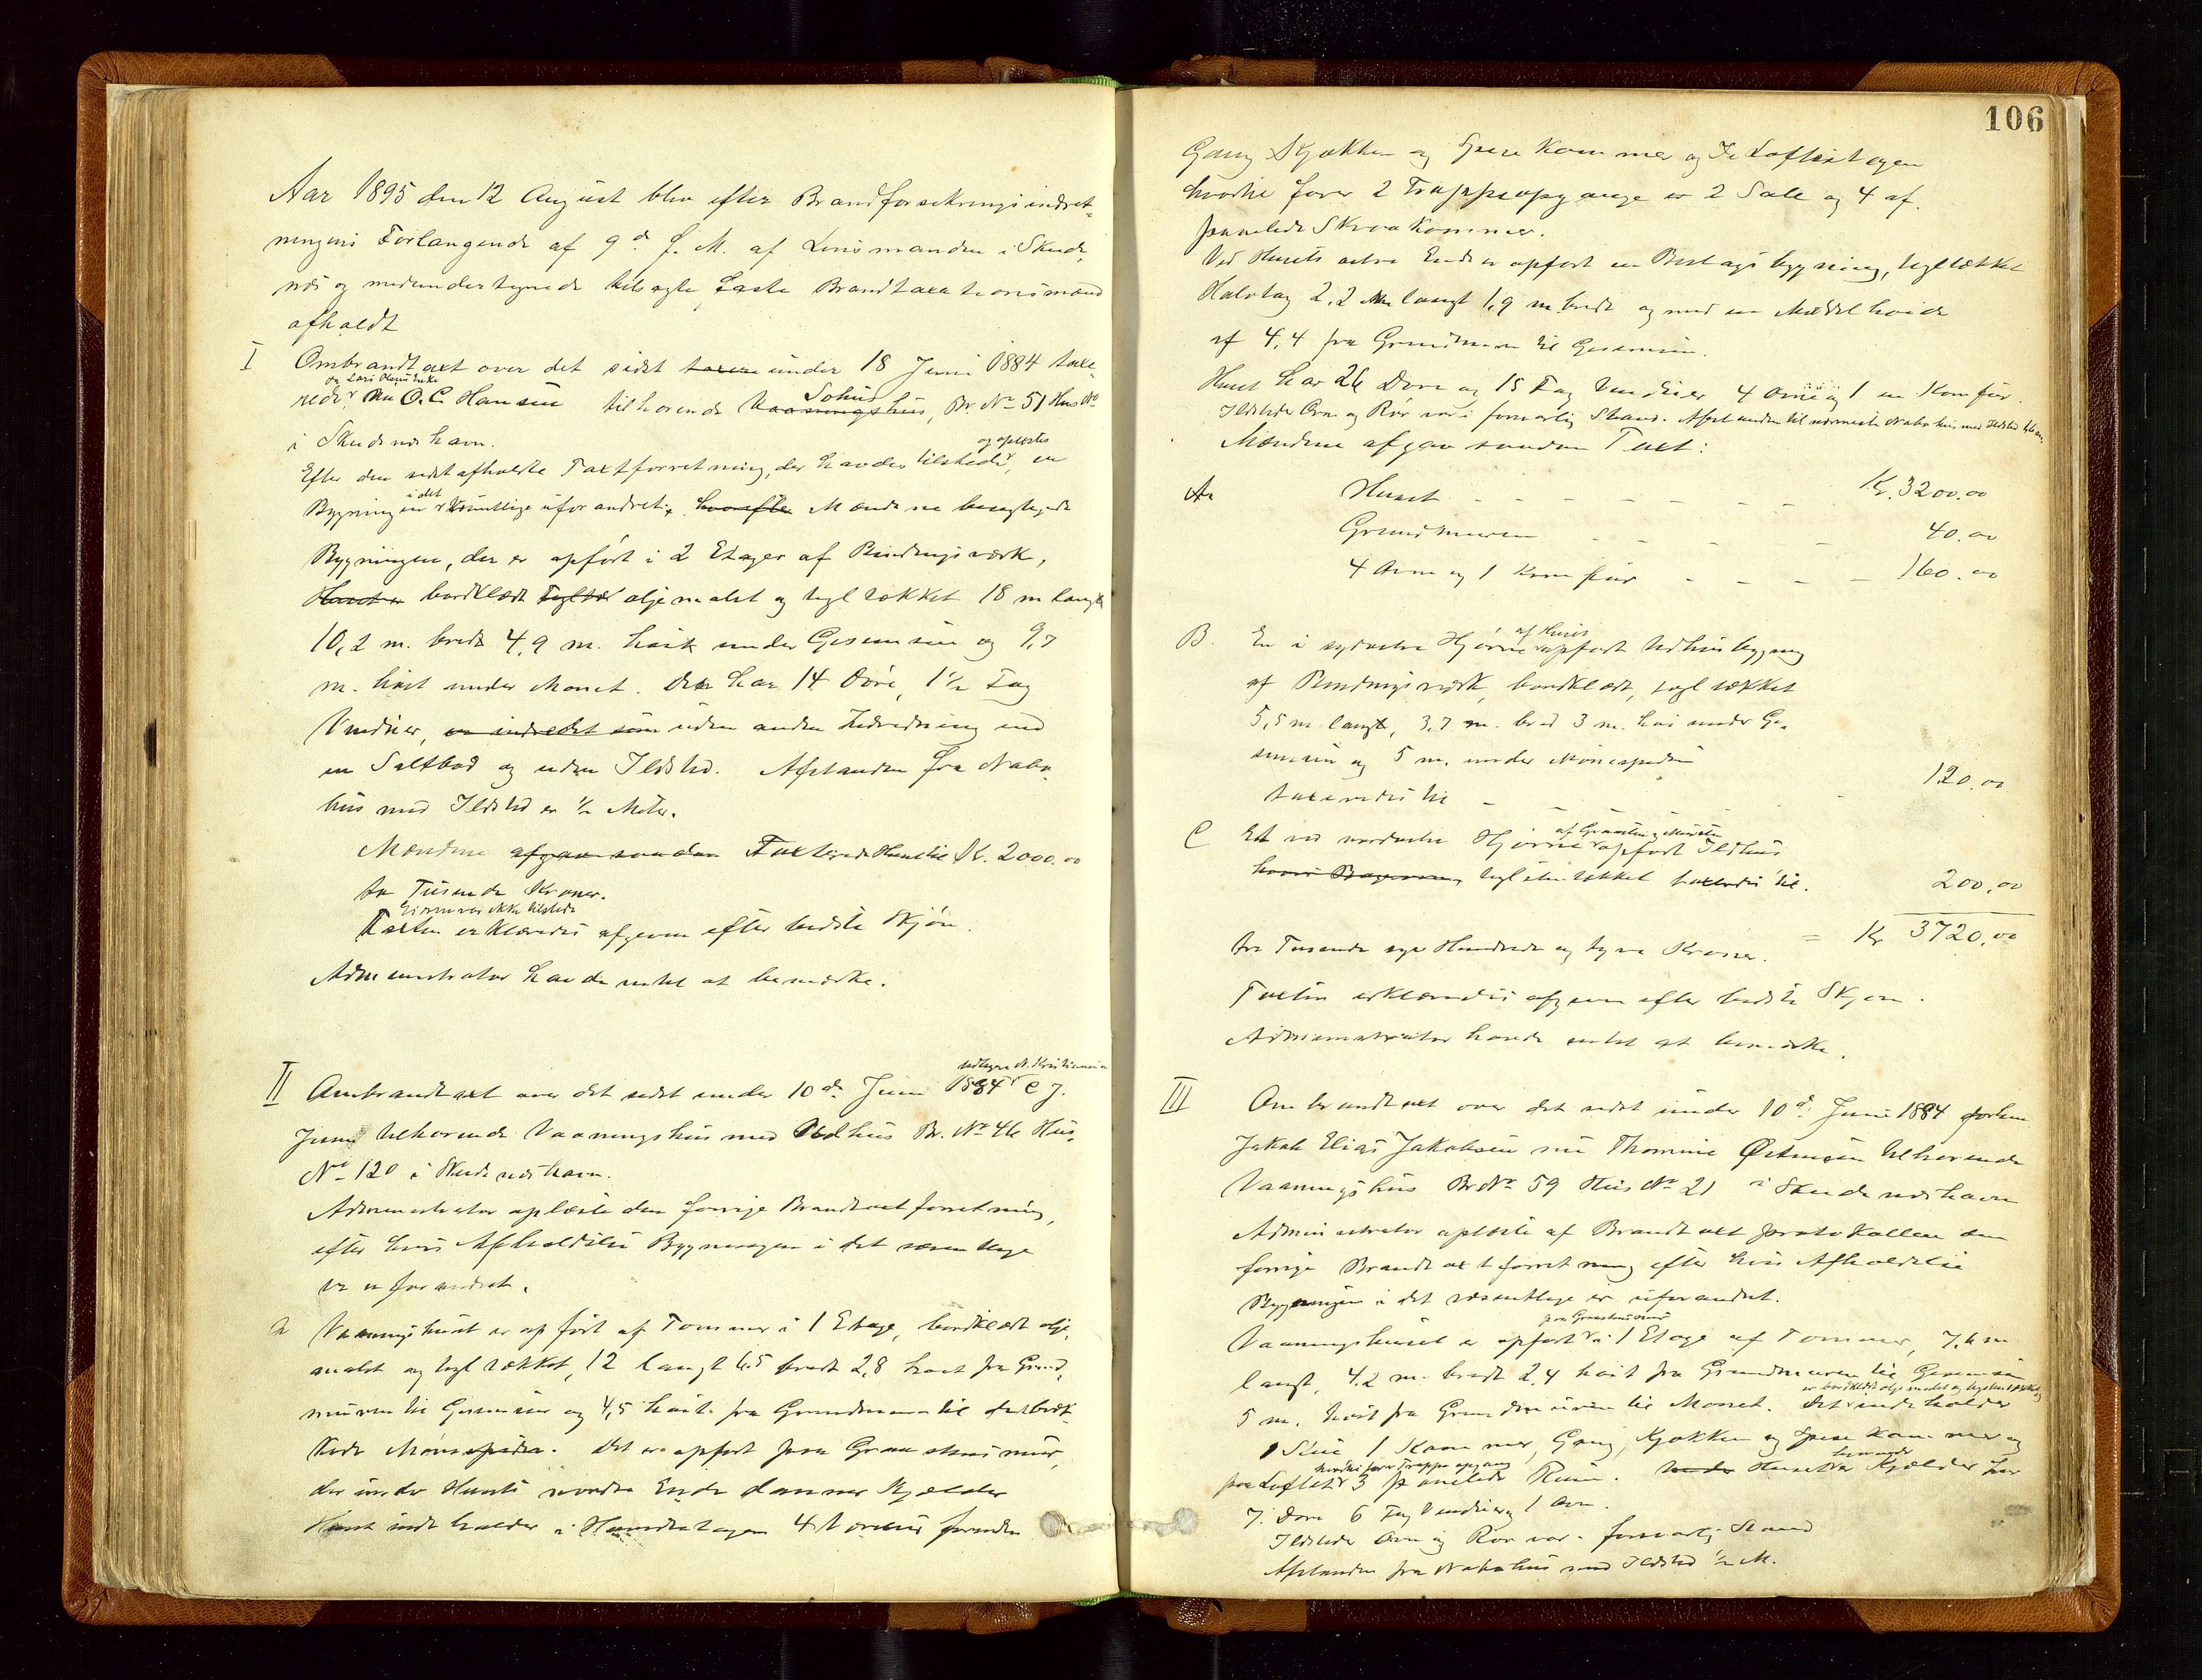 Aar 1895 den 12 August blev efter Brandforsikringsindret-
ningens Forlangende af 9de f. M. af Lensmanden i Skude-
næs og medundertegnede tilsagte faste Brandtaxationsmænd
afholdt
I Ombrandtaxt over det sidst taxere under 18 Juni 1884 taxe-
og Lars Enke
rede O. C. Hansen tilhørende Vaaningshus, Søhus, Br. No 51 Hus No
i Skudesneshavn.
og oplæstes
Efter den sidst afholdte Taxtforretning, der havdes tilstede, er
i det
Bygningen væsentlige uforandret. hvorefter Mændene besigtigede
Bygningen, der er opført i 2 Etager af Bindingsværk,
Huset er bordklædt Tegltæk oljemalet og tegltækket 18 m langt
10,2 m. bredt 4,9 m. høit under Gesemsen og 9,7
m. høit under Mønet. Det har 14 Døre, 1½ Fag
Vinduer, er indredet som uden anden Indredning end
en Saltbod og uden Ildsted. Afstanden fra Nabo
hus med Ildsted er ½ Meter.
Mændene afgav saadan Taxt Huset til Kr. 2000.00
to Tusende Kroner.
Eieren var ikke tilstede
Taxten erklæredes afgiven efter bedste Skjøn.
Administrator havde intet at bemærke.
II Ombrandtaxt over det sidst under 10de Juni 1884 C J.
tilhørende Vaaningshus med Udhus Br. No 46 Hus-
No 120 i Skudesneshavn.
Administrator oplæste den forrige Brandtaxtforretning,
efter hvis Afholdelse Bygningen i det væsentlige
er uforandret.
Vaaningshuset er opført af Tømmer i 1 Etage, bordklædt olje-
malet og tegltækket, 12 langt 6,5 bredt 2,8 høit fra Grund-
muren til Gesemsen og 4,5 høit fra Grundmuren til
Mønespidsen. Det er opført paa Graastensmur,
der under Husets nordre Ende danner Kjælder
Huset indeholder i 4 Værelser foruden
106
Gang Kjøkken og Spise Kammer og I Loftsetagen
hvortil fører 2 Trappeopgange er 2 Sale og 4 af-
panelede Skraakammer.
Ved Husets østre Ende er opført en Beslagsbygning, tegltækket
Halvtag 2,2 m langt 1,9 m bredt og med en Middelhøide
af 4,4 fra Grundmuren til Gesemsen.
Huset har 26 Døre og 15 Fag Vinduer 4 Ovne og 1 en Komfur.
Ildsteder Ovn og Rør var i forsvarlig Stand. Afstanden til nærmeste Nabohus med Ildsted
Mændene afgav saadan Taxt:
Huset - - - - - - Kr. 3200.00
Grundmuren - - - - 40.00
4 Ovne og 1 Komfur - - - - 160.00
af Huset
B. En i sydvestre Hjørne opført Udhusbygning
af Bindingsværk, bordklædt, tegltækket
5,5 m langt, 3,7 m. bred 3 m. høi under Ge-
semsen og 5 m. under Mønespidsen
taxeredes til - - - - 120.00
af Graasten og Mursten
C Et ved nordvestre Hjørne opført Ildhus
tegltækket taxeredes til. 200.00
tre Tusende syv Hundrede og tyve Kroner. = Kr 3720.00
Taxten erklæredes afgiven efter bedste Skjøn.
Administrator havde intet at bemærke.
III Ombrandtaxt over det sidst under 10de Juni 1884
Jakob Elias Jakobsen nu Thomine Østensen tilhørende
Vaaningshus Br No 59 Hus No 21 i Skudesneshavn
Administrator oplæste af Brandtaxtprotokollen den
forrige Brandtaxtforretning efter hvis Afholdelse
Bygningen i det væsentlige er uforandret.
paa Graastensmur
Vaaningshuset er opført i 1 Etage af Tømmer, 7,6 m
langt, 4.2 m. bredt 2,4 høit fra Grundmuren til Gesemsen
er bordklædt oljemalet og teglstenstækket og
5 m. høit fra Grundmuren til Mønet. Det indeholder
1 Stue 1 Kammer, Gang, Kjøkken og Spise Kammer og
hvortil fører Trappeopgang
paa Loftet 3 panelede Rum. under Huset Kjælder har
7. Døre 6 Fag Vinduer, 1 Ovn.
Ildsteder Ovn og Rør var i forsvarlig Stand
Afstanden fra Nabohus med Ildsted ½ M.